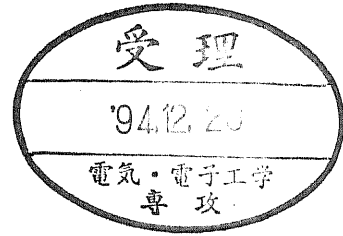 受理
'94.12.20
電気・電子工学
専攻